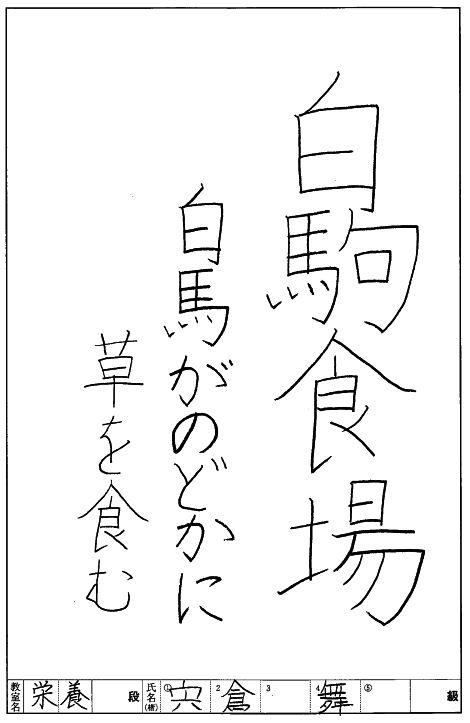 白駒食場
白馬がのどかに
草を食む
教室名 栄養 段 氏名 ① 宍 2 倉 3 4 舞 ⑤ 級